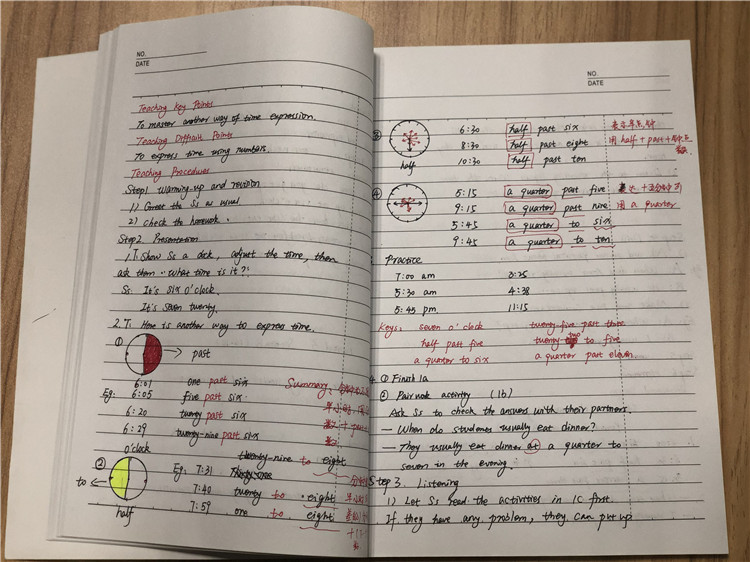 NO.
DATE
Teaching Key Points
To master another way of time expression.
Teaching Difficult Points
To express time using numbers.
Teaching Procedures
Step1 Warming-up and revision
1) Greet the Ss as usual
2) Check the homework.
Step2. Presentation
1. T: Show Ss a clock, adjust the time, then
ask them: what time is it?
Ss: It's six o'clock.
It's seven twenty.
2. T: Here is another way to express time.
① → past
6:01 one past six Summary:
Eg: 6:05 five past six
6:20 twenty past six
6:29 twenty-nine past six
o'clock twenty-nine to eight
② Eg: 7:31 Thirty-one
to ← 7:40 twenty to eight
7:59 one to eight
half
NO.
DATE
③ 6:30 half past six
8:30 half past eight 用 half + past +
10:30 half past ten
half
④ 5:15 a quarter past five
9:15 a quarter past nine 用 a quarter
5:45 a quarter to six
9:45 a quarter to ten
Practice
7:00 am 3:25
5:30 am 4:38
5:45 pm 11:15
Keys: seven o'clock twenty-five past three
half past five twenty-two to five
a quarter to six a quarter past eleven
4. ① Finish 1a
② Pair work activity (1b)
Ask Ss to check the answers with their partners.
— When do students usually eat dinner?
— They usually eat dinner at a quarter to
seven in the evening.
Step 3. Listening
1) Let Ss read the activities in 1C first.
If they have any problem, they can put up